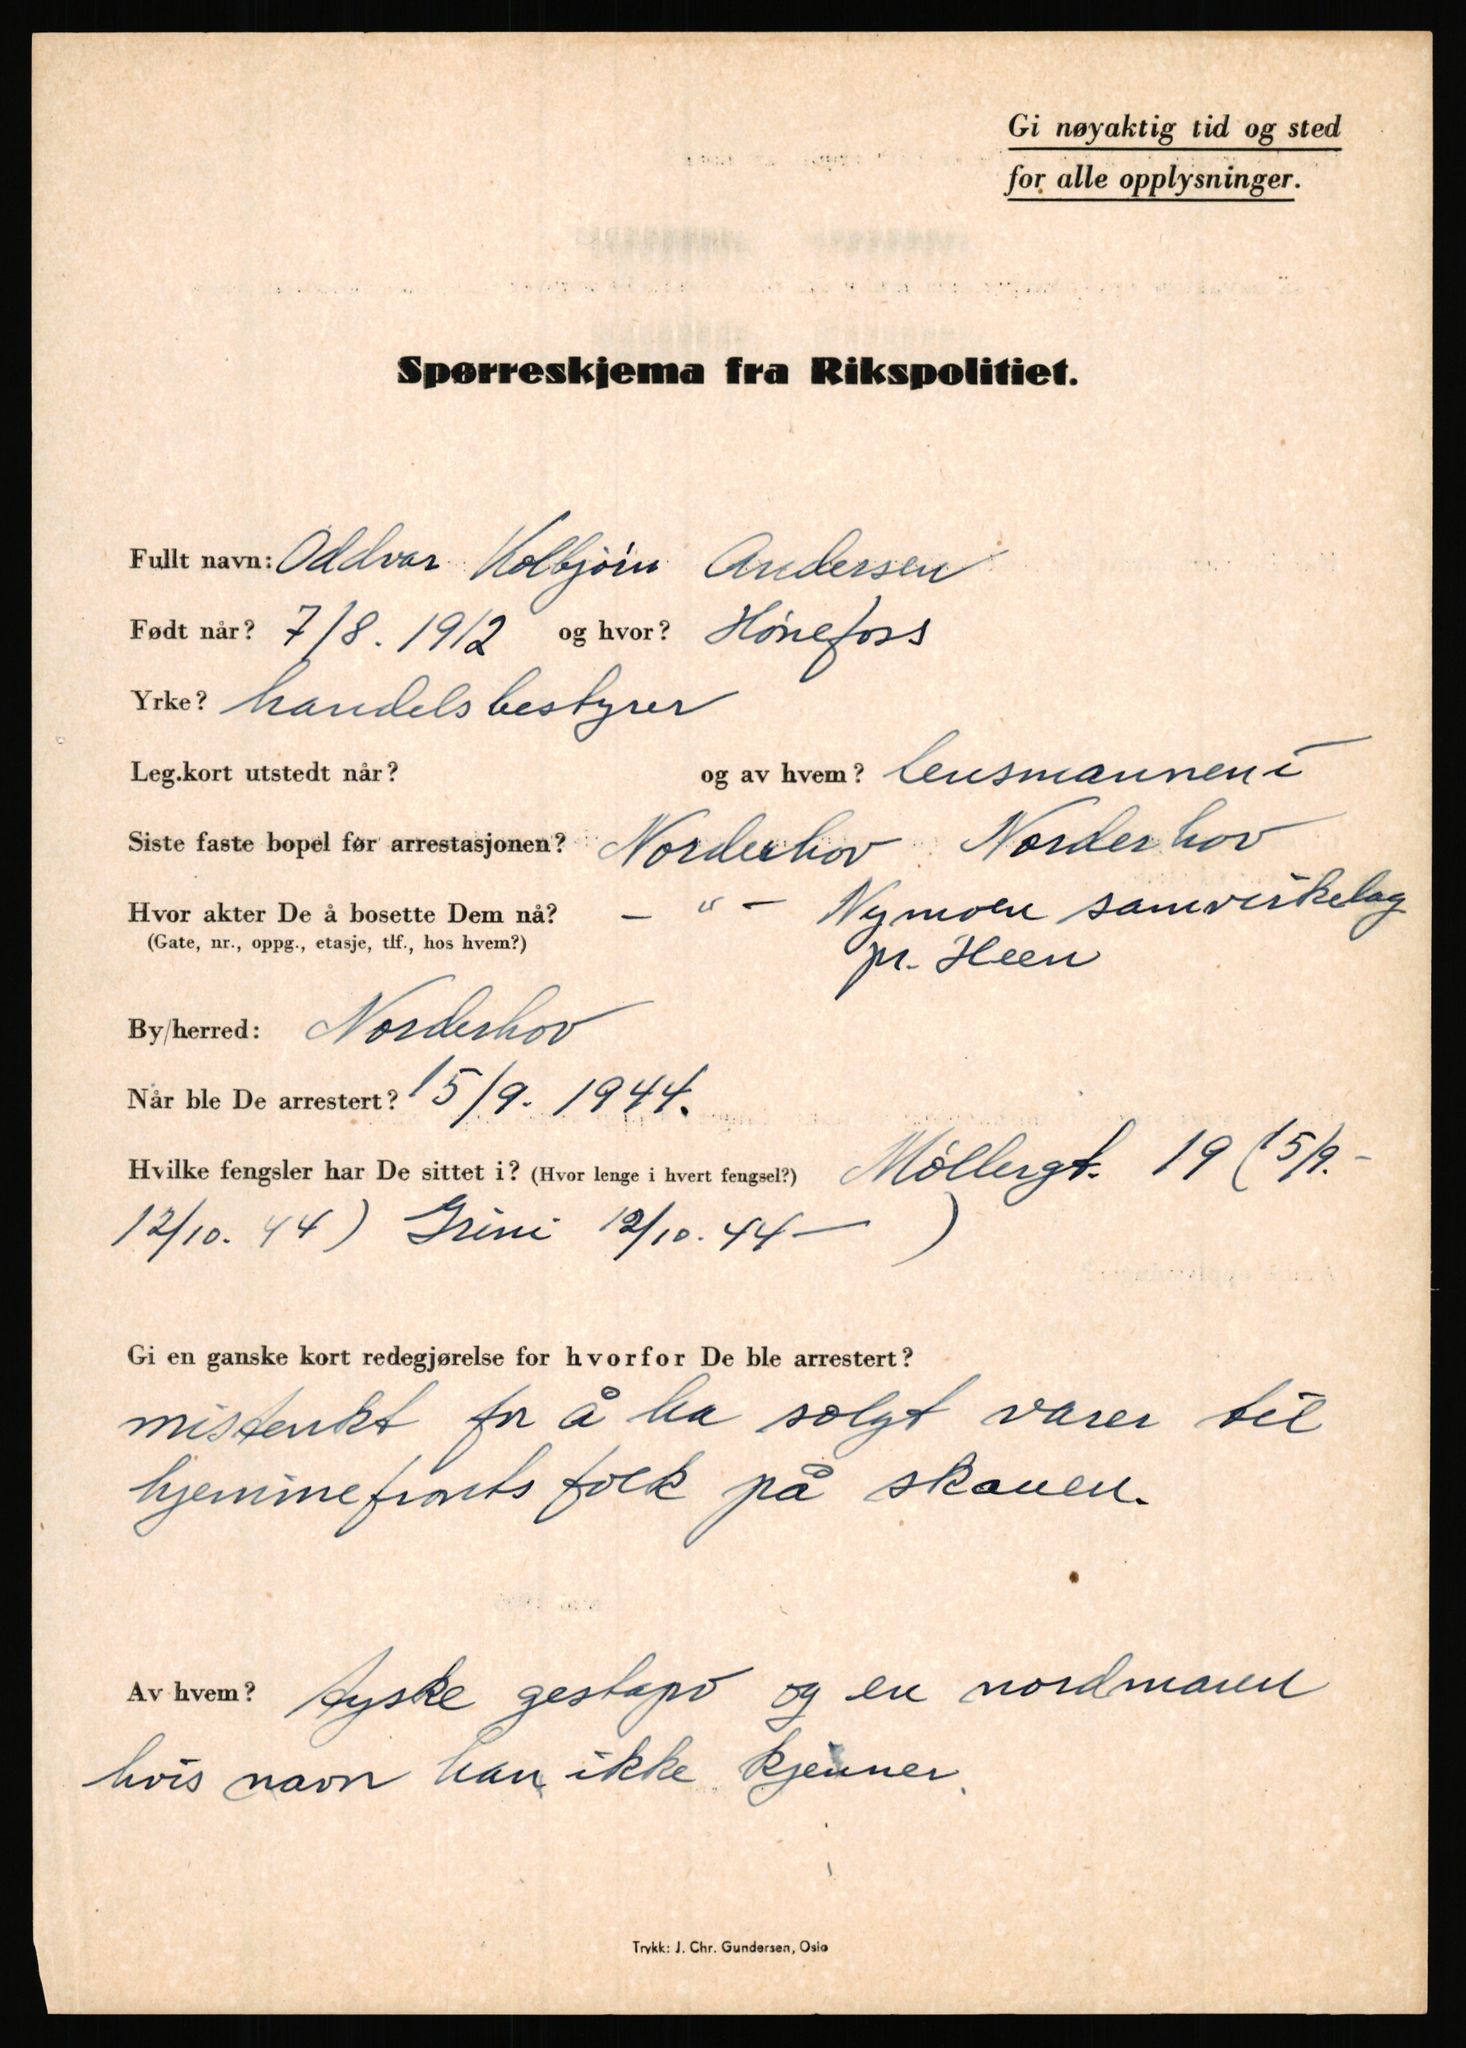 Gi nøyaktig tid og sted
for alle opplysninger.
Spørreskjema fra Rikspolitiet.
Fullt navn: Oddvar Kolbjörn Andersen
Født når? 7/8. 1912 og hvor? Hønefoss
Yrke? handelsbestyrer
Leg.kort utstedt når? og av hvem? lensmannen i
Siste faste bopel før arrestasjonen? Norderhov Norderhov
Hvor akter De å bosette Dem nå? — " — Nymoen samvirkelag
(Gate, nr., oppg., etasje, tlf., hos hvem?) pr. Heen
By/herred: Norderhov
Når ble De arrestert? 15/9. 1944.
Hvilke fengsler har De sittet i? (Hvor lenge i hvert fengsel?) Möllergt. 19 (15/9. –
12/10. 44) Grini 12/10. 44 — )
Gi en ganske kort redegjørelse for hvorfor De ble arrestert?
mistenkt for å ha solgt varer til
hjemmefronts folk på skauen.
Av hvem? tyske gestapo og en nordmann
hvis navn han ikke kjenner.
Trykk: J. Chr. Gundersen, Oslo